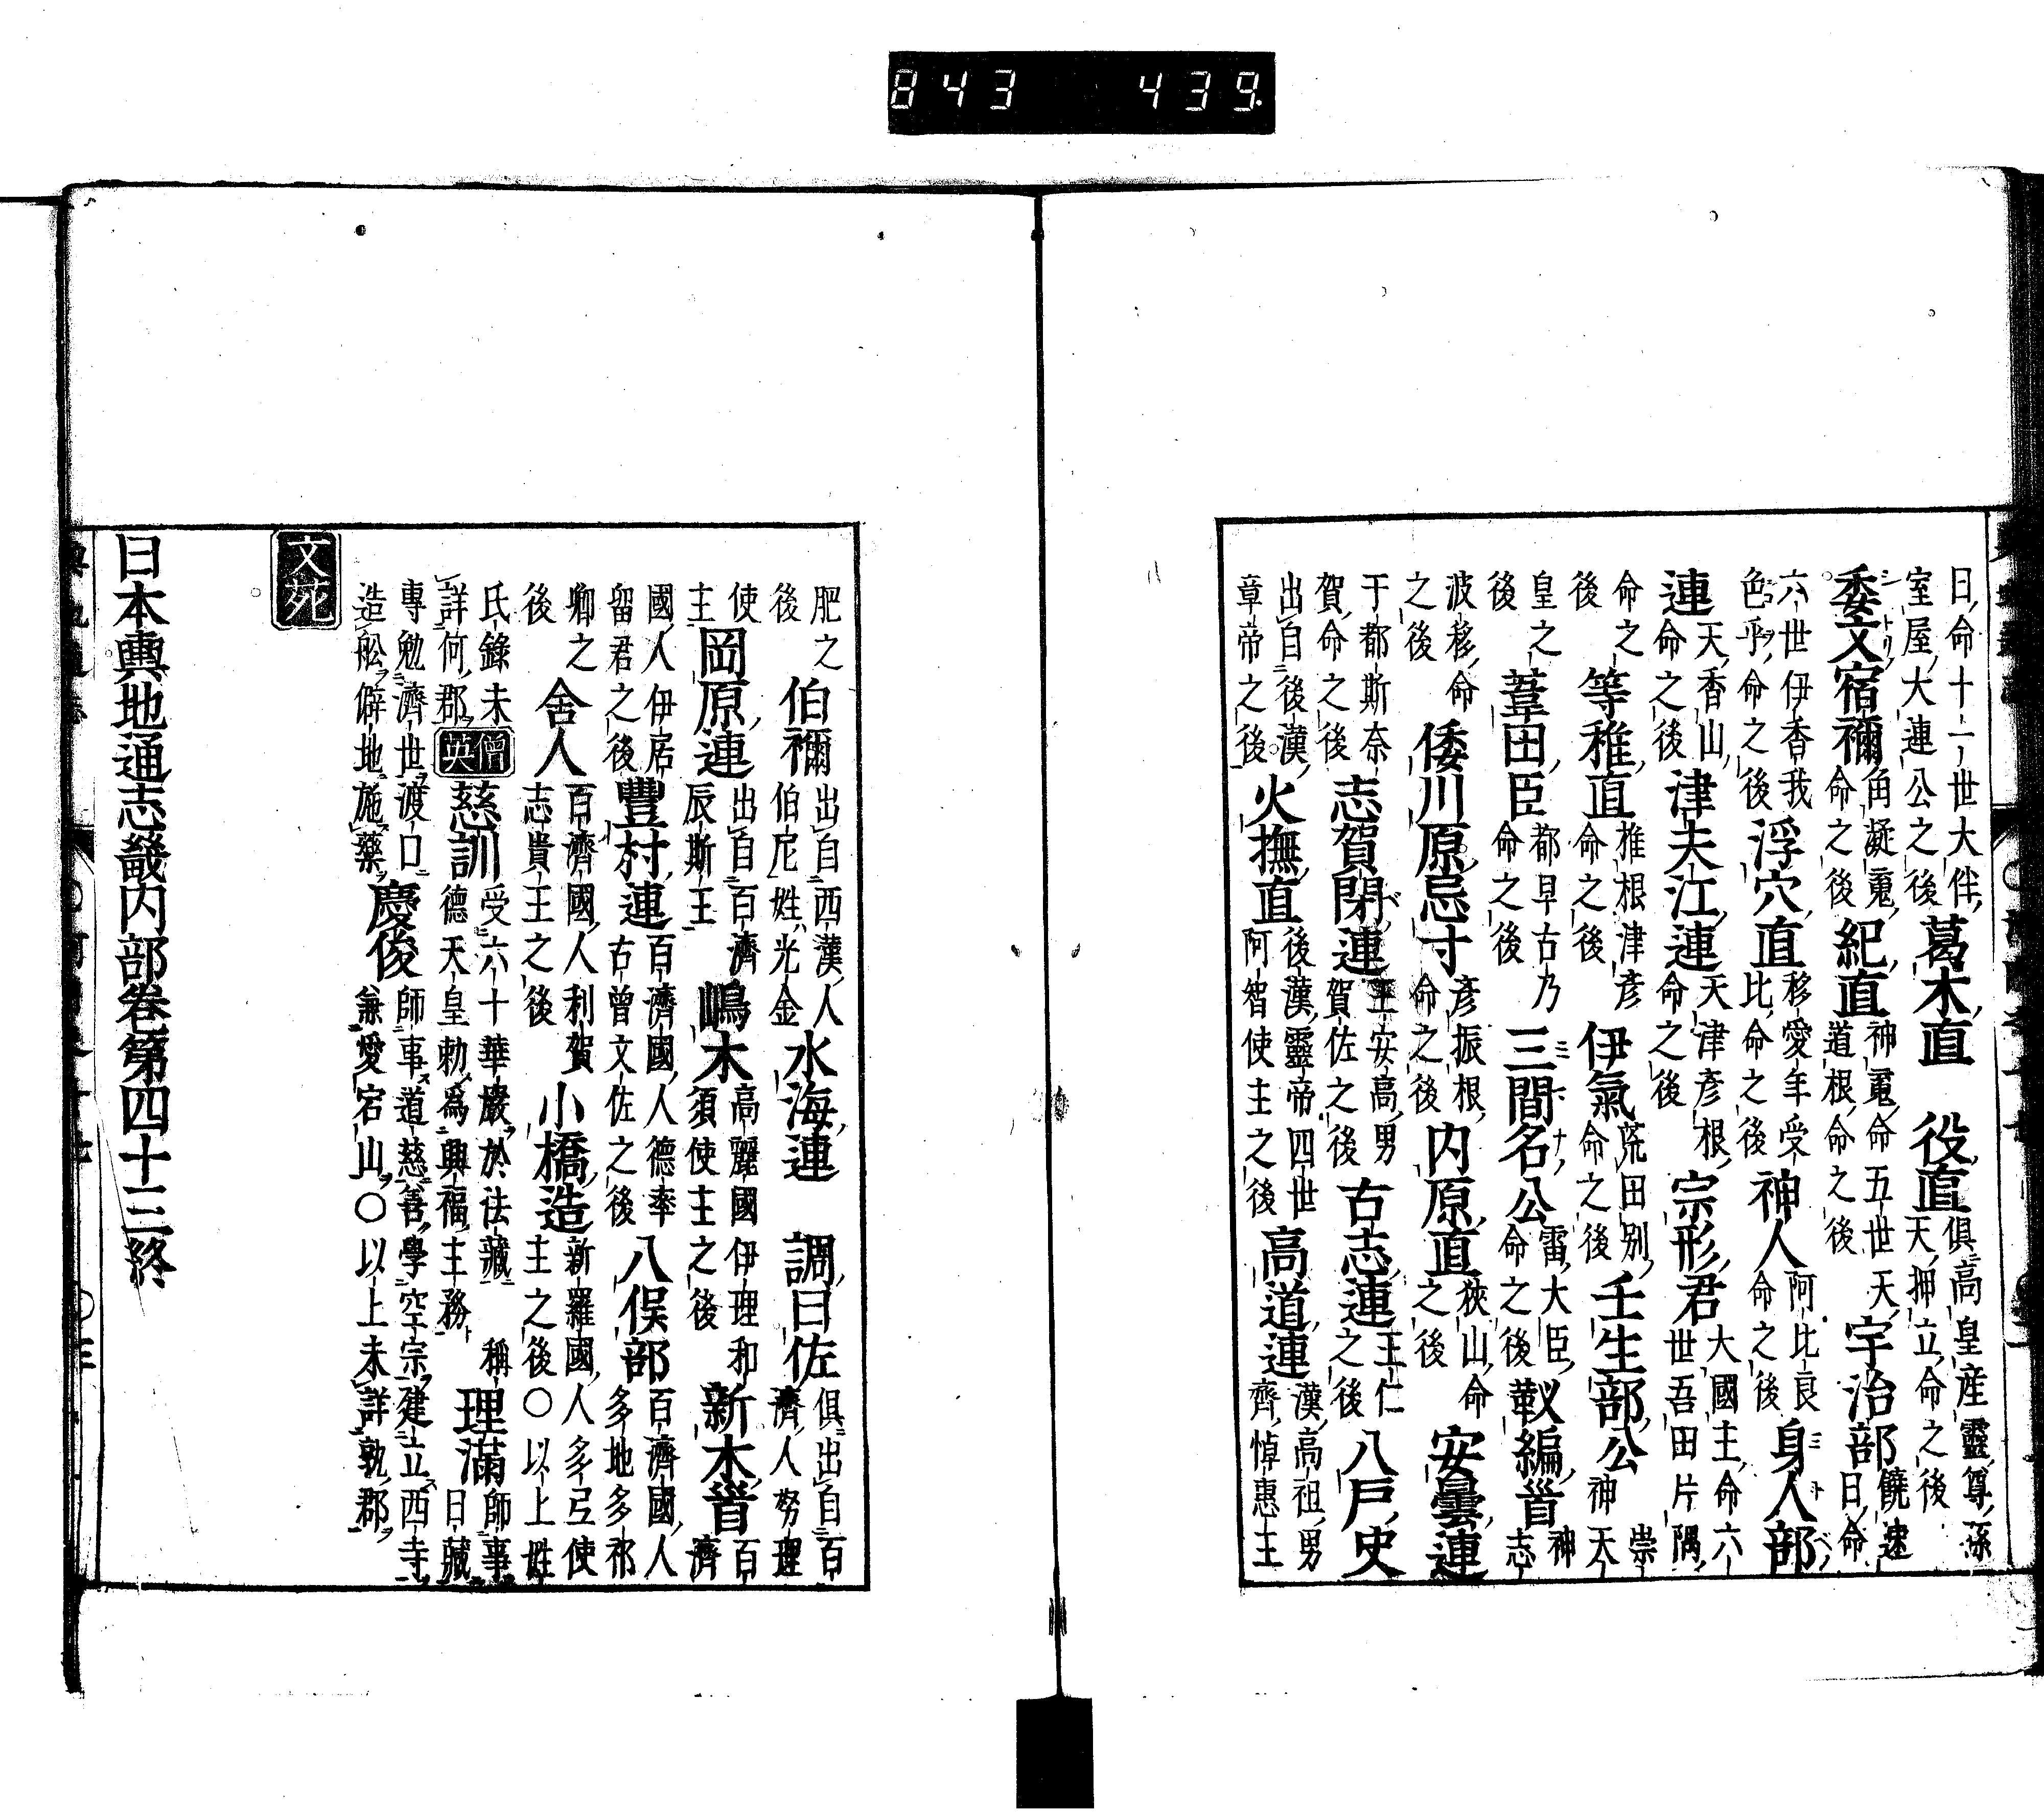 843 439
日命十一世大伴室屋大連公之後葛木直 役直俱高皇産靈尊孫天押立命之後
委文宿禰角凝䰠命之後紀直神䰠命五世天道根命之後宇治部饒速日命
六世伊香我色乎命之後浮穴直移愛年受比命之後神人阿比良命之後身人部
連天香山命之後津夫江連天津彦根命之後宗形君大國主命六世吾田片隅
命之後等稚直椎根津彦命之後伊氣荒田別命之後壬生部公崇神天
皇之後葦田臣都早古乃命之後三間名公雷大臣命之後靱編首神志
波移命之後倭川原忌寸彦振根命之後内原直狹山命之後安曇連
于都斯奈賀命之後志賀閇連王安高男賀佐之後古志連王仁之後八戸史
出自後漢章帝之後火撫直後漢靈帝四世阿智使主之後高道連漢高祖男齊悼惠王
肥之後伯禰出自西漢人伯尼姓光金水海連 調曰佐俱出自百濟人努理
使主岡原連出自百濟辰斯王嶋木高麗國伊理和須使主之後新木首百濟
國人伊居留君之後豐村連百濟國人德率古曾文佐之後八俣部百濟國人多地多祁
卿之後舍人百濟國人利賀志貴王之後小橋造新羅國人多弖使主之後〇以上姓
氏錄未詳何郡僧英慈訓受六十華嚴於法藏稱德天皇勅爲興福主務理滿師事日藏
專勉濟世渡口造舩僻地施藥慶俊師事道慈善學空宗建立西寺兼愛宕山〇以上未詳孰郡
文苑
日本輿地通志畿内部卷第四十三終